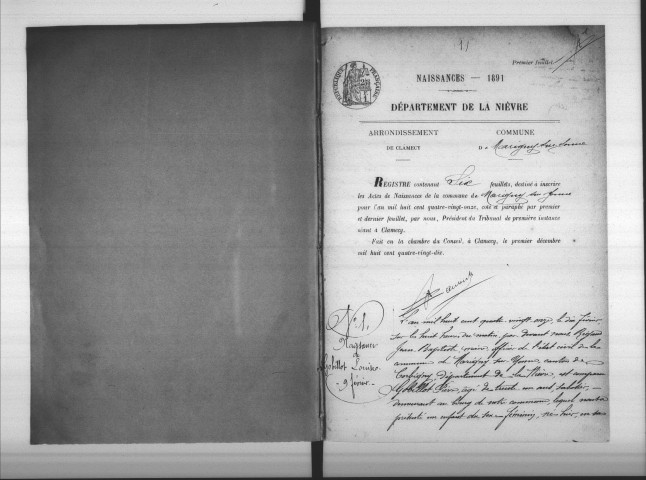 Premier feuillet
RÉPUBLIQUE FRANÇAISE
NAISSANCES — 1891
DÉPARTEMENT DE LA NIÈVRE
ARRONDISSEMENT
DE CLAMECY
COMMUNE
D e Marigny sur Yonne
REGISTRE contenant Six feuillets, destiné à inscrire
les Actes de Naissances de la commune de Marigny sur Yonne
pour l'an mil huit cent quatre-vingt-onze, coté et paraphé par premier
et dernier feuillet, par nous, Président du Tribunal de première instance
séant à Clamecy.
Fait en la chambre du Conseil, à Clamecy, le premier décembre
mil huit cent quatre-vingt-dix.
N° 1.
Naissance
de
Gobillot Louise
9 février
L'an mil huit cent quatre vingt onze, le dix février
sur les huit heures du matin, par devant nous
Jean Baptiste maire, officier de l'état civil de la
commune de Marigny sur Yonne, canton de
Corbigny, département de la Nièvre, est comparu
Gobillot âgé de trente un ans,
demeurant au bourg de notre commune, lequel nous a
présenté un enfant du sexe féminin, né hier,